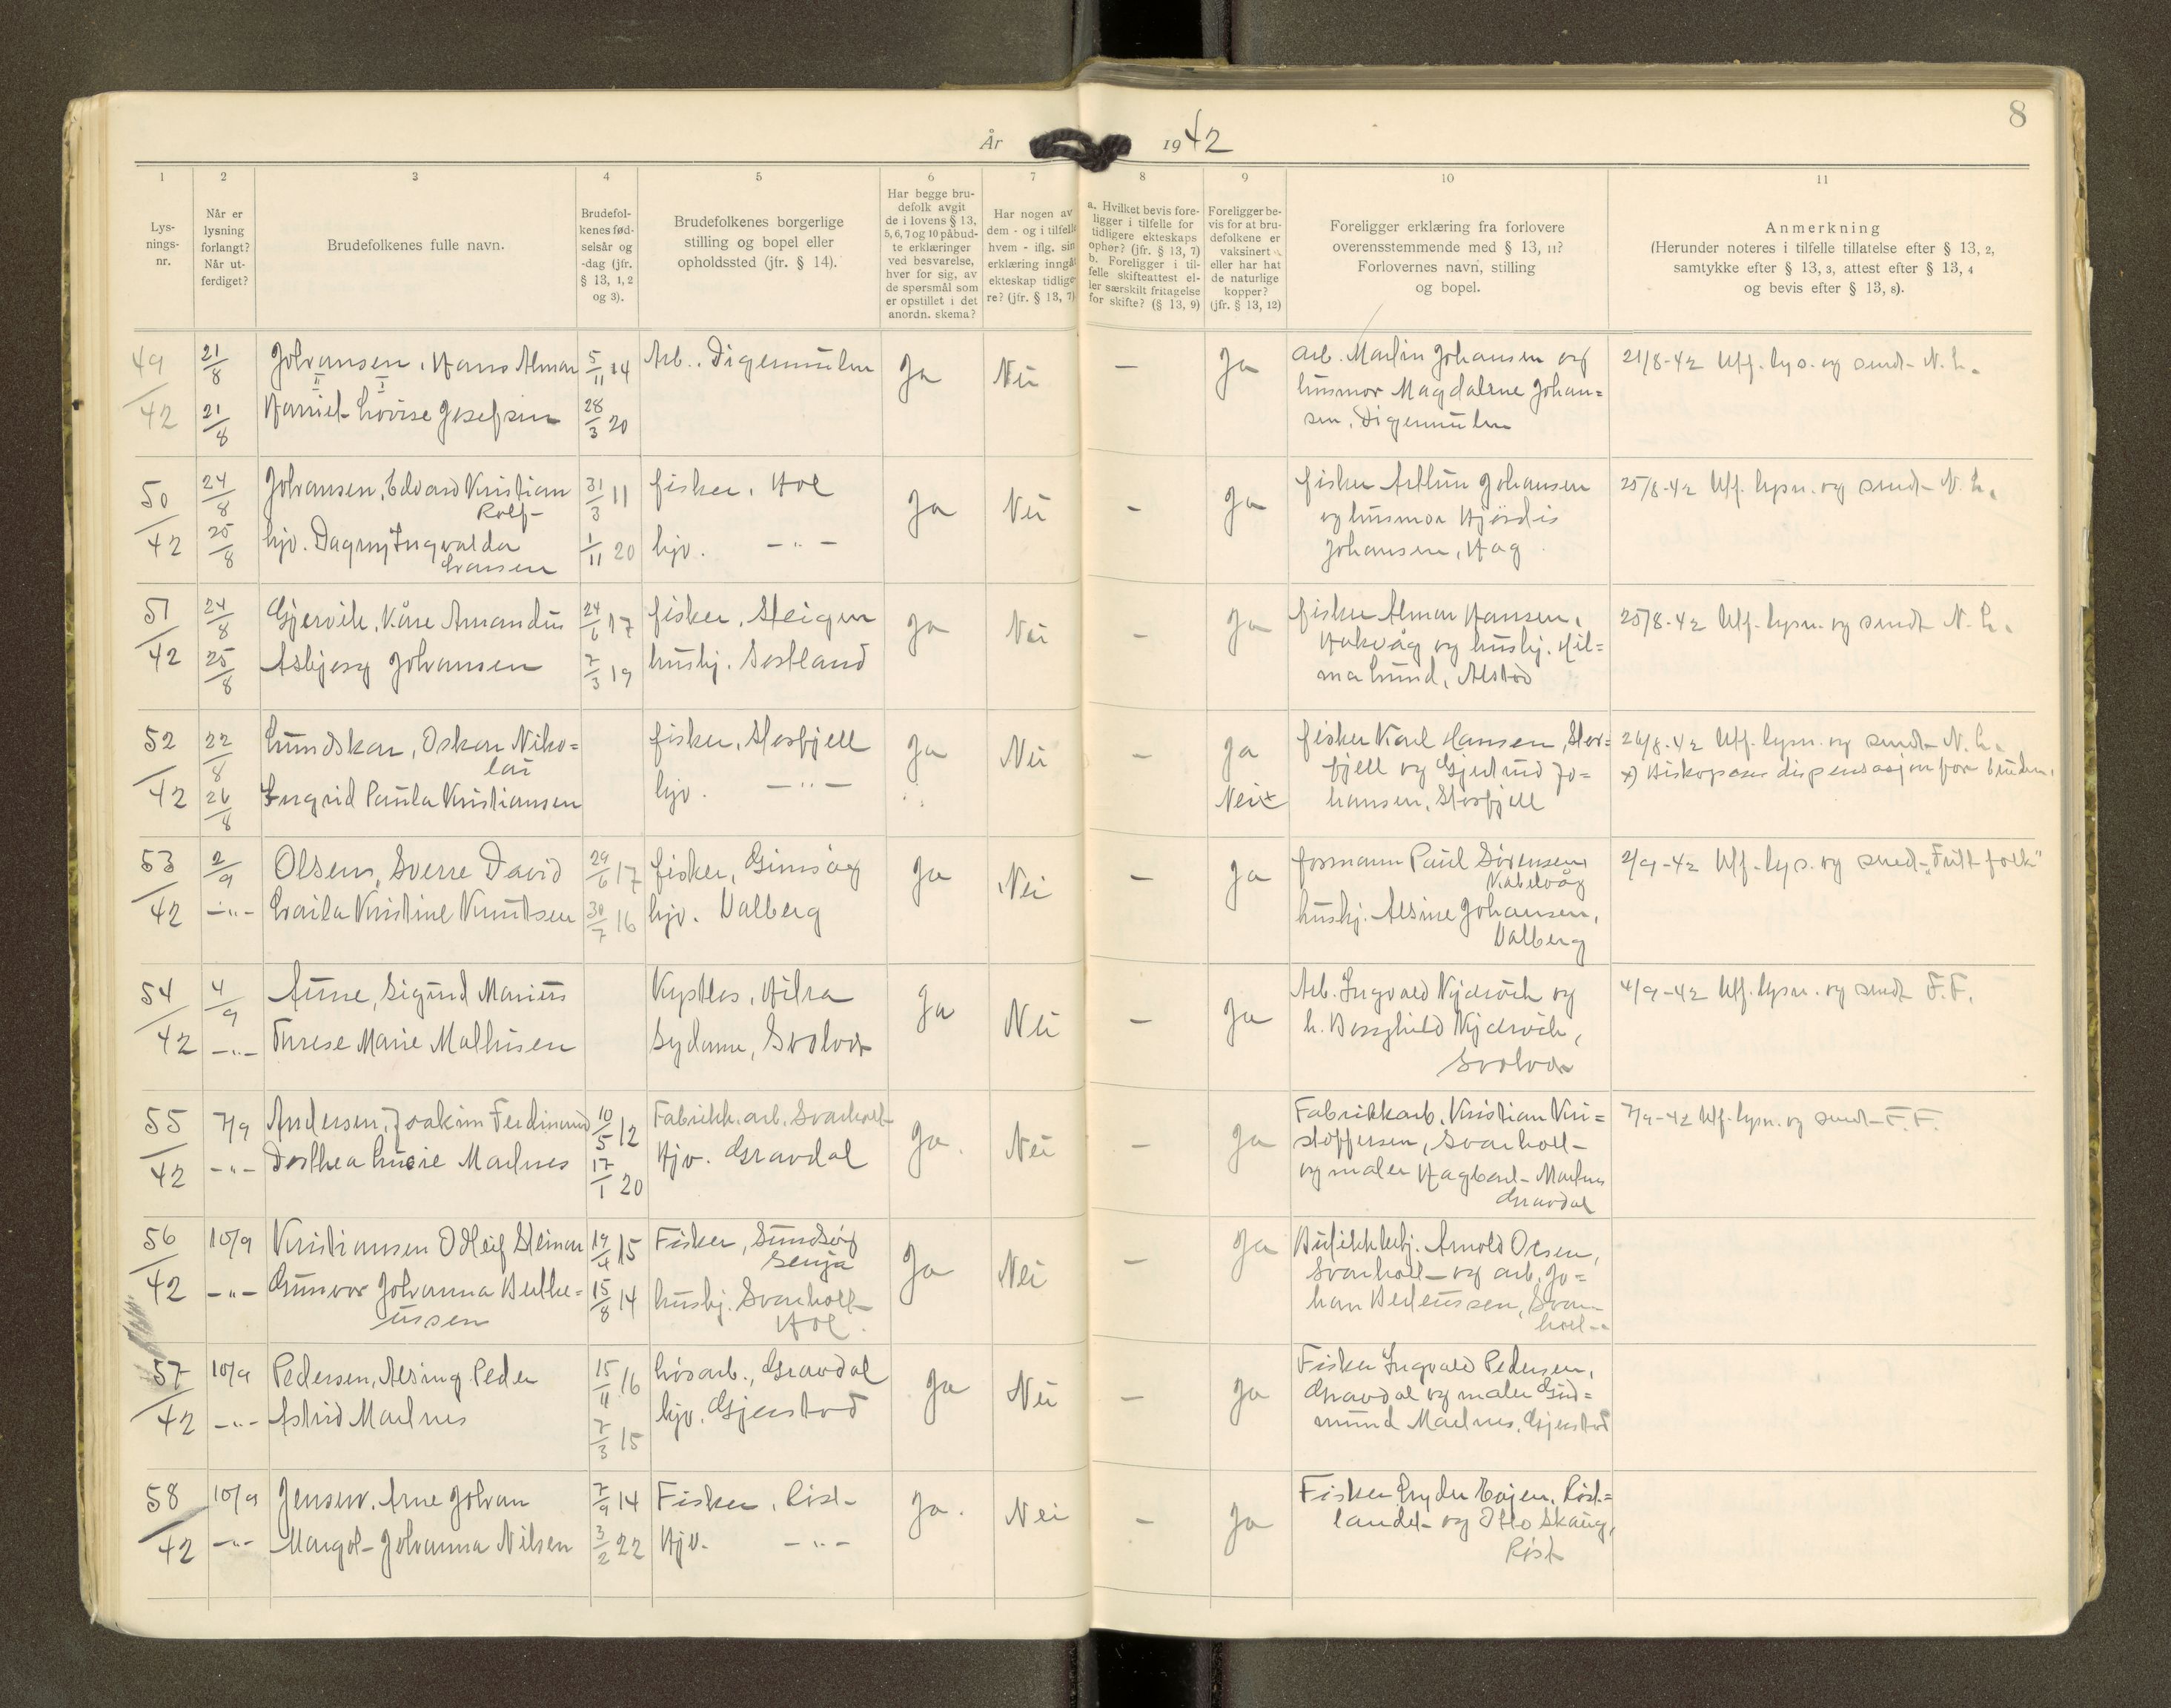 8
År 1942
1 2 3 4 5 6 7 8 9 10 11
Lys-
nings-
nr.
Når er
lysning
forlangt?
Når ut-
ferdiget?
Brudefolkenes fulle navn.
Brudefol-
kenes fød-
selsår og
-dag (jfr.
§ 13, 1, 2
og 3).
Brudefolkenes borgerlige
stilling og bopel eller
opholdssted (jfr. § 14).
Har begge bru-
defolk avgit
de i lovens § 13,
5, 6, 7 og 10 påbud-
te erklæringer
ved besvarelse,
hver for sig, av
de spørsmål som
er opstillet i det
anordn. skema?
Har nogen av
dem - og i tilfelle
hvem - iflg. sin
erklæring inngåt
ekteskap tidlige-
re? (jfr. § 13, 7)
a. Hvilket bevis fore-
ligger i tilfelle for
tidligere ekteskaps
ophør? (jfr. § 13, 7)
b. Foreligger i til-
felle skifteattest el-
ler særskilt fritagelse
for skifte? (§ 13, 9)
Foreligger be-
vis for at bru-
defolkene er
vaksinert
eller har hat
de naturlige
kopper?
(jfr. § 13, 12)
Foreligger erklæring fra forlovere
overensstemmende med § 13, 11?
Forlovernes navn, stilling
og bopel.
Anmerkning
(Herunder noteres i tilfelle tillatelse efter § 13, 2,
samtykke efter § 13, 3, attest efter § 13, 4
og bevis efter § 13, 8).
49/42
21/8
21/8
Johansen, Hans Almar
Harriet Lovise Josefsen
5/11 14
28/3 20
Arb. Digermulen
Ja
Nei
-
Ja
Arb. Martin Johansen og
husmor Magdalene Johan=
sen, Digermulen
21/8-42 Utf. lys. og sendt N. L.
50/42
24/8
25/8
Johansen, Edvard Kristian
Rolf
hjv. Dagny Ingvalda
Larsen
31/3 11
1/11 20
fisker, Hol
hjv. -"-
Ja
Nei
-
Ja
fisker Arthur Johansen
og husmor Hjørdis
Johansen, Hag
25/8-42 Utf. lysn. og sendt N. L.
51/42
24/8
25/8
Gjervik, Kåre Amandus
Asbjørg Johansen
24/6 17
7/3 19
fisker, Steigen
hushj. Sortland
Ja
Nei
-
Ja
fisker Almar Hansen,
Hakvåg og hushj. Hil=
ma Lund, Alstad
25/8-42 Utf. lysn. og sendt N. L.
52/42
22/8
26/8
Lundskar, Oskar Niko=
lai
Ingrid Paula Kristiansen
fisker, Storfjell
hjv. -"-
Ja
Nei
-
Ja
Nei x
fisker Karl Hansen, Stor=
fjell og Gjertrud Jo=
hansen, Storfjell
26/8-42 Utf. lysn. og sendt N. L.
x) Biskopens dispensasjon for bruden.
53/42
2/9
-"-
Olsen, Sverre David
Laila Kristine Knutsen
29/6 17
30/7 16
fisker, Gimsøy
hjv. Valberg
Ja
Nei
-
Ja
formann Paul Sørensen,
Kabelvåg
hushj. Alsine Johansen,
Valberg
2/9-42 Utf. lys. og sendt "Fritt folk"
54/42
4/9
-"-
Aune, Sigurd Marius
Terese Marie Mathisen
Kyptlos, Hitra
Sydame, Svolvær
Ja
Nei
-
Ja
Arb. Ingvald
h. Borghild
Svolvær
4/9-42 Utf. lysn. og sendt F. F.
55/42
7/9
-"-
Andersen, Joakim Ferdinand
Dorthea Lucie Marknes
10/5 12
17/1 20
Fabrikk.arb. Svarholt
Hjv. Gravdal
Ja.
Nei
-
Ja
Fabrikkarb. Kristian Kri=
stoffersen, Svarholt
og maler Hagbart Marknes
Gravdal
7/9-42 Utf. lysn. og sendt F. F.
56/42
10/9
-"-
Kristiansen Odleif Steinar
Gunvor Johanna Berthe=
ussen
19/4 15
15/8 14
Fisker,
Senja
hushj. Svarholt
Hol.
Ja
Nei
-
Ja
Butikkhj. Arnold Olsen,
Svarholt og arb. Jo=
han Berteussen, Svar-
holt
57/42
10/9
-"-
Pedersen, Alsing Peder
Astrid Marknes
15/11 16
7/3 15
løsarb., Gravdal
hjv. Gjerstad
Ja
Nei
-
Ja
Fisker Ingvald Pedersen,
Gravdal og maler Gud=
mund Marknes, Gjerstad
58/42
10/9
-"-
Jensen, Arne Johan
Margot Johanna Nilsen
7/9 14
3/2 22
Fisker, Røst
Hjv. -"-
Ja.
Nei
-
Ja
Fisker Lyder Røst=
landet og Otto Skaug,
Røst